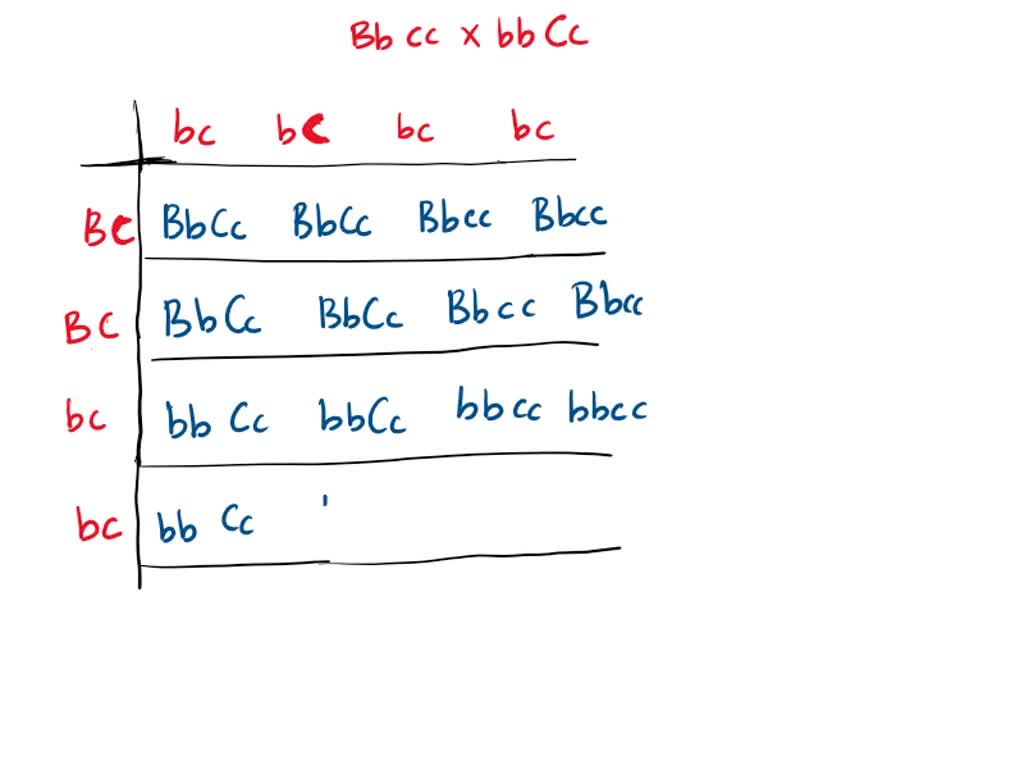 Bb cc x bb Cc
bc bC bc bc
Bc BbCc BbCc Bbcc Bbcc
Bc BbCc BbCc Bbcc Bbcc
bc bb Cc bbCc bbcc bbcc
bc bb Cc